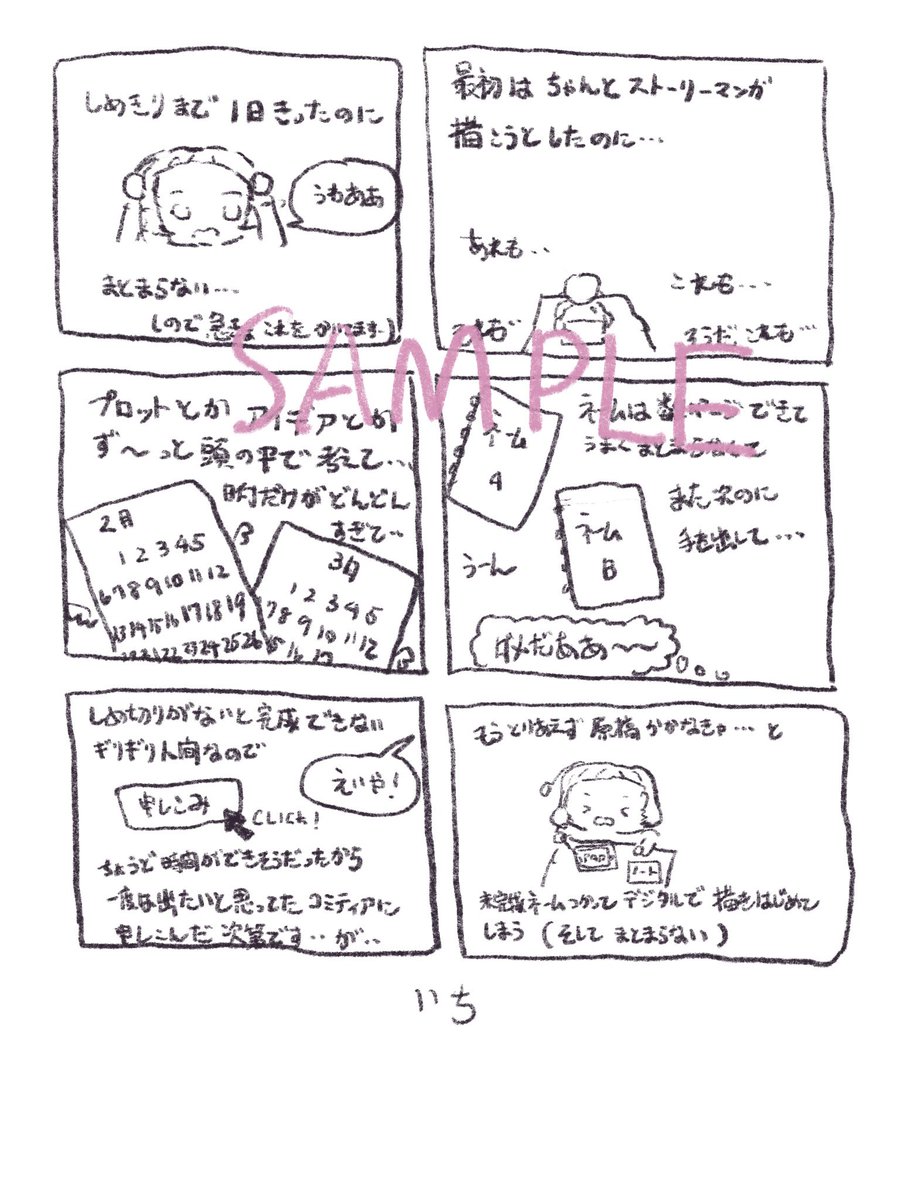 しめきりまで 1日きったのに
うわああ
まとまらない…
これをかいてます…)
最初は ちゃんと ストーリーマンガ
描こうとしたのに…
あれも…
これも…
そうだ これも…
プロットとか アイデアとか
ず〜っと 頭の中で 考えて…
時だけがどんどん
すぎて…
2月
1 2 3 4 5
6 7 8 9 10 11 12
13 14 15 16 17 18 19
22 23 24 25 26
3月
1 2 3 4 5
7 8 9 10 11 12
15 16 17
ネーム
A
ネームは 数ページ できて
うまく まとまらなくて
また 次のに
手を出して…
ネーム
B
うーん
ダメだああ〜〜
しめ切りがないと完成できない
ギリギリ人間なので
えいや!
申しこみ
CLICK!
ちょうど時間ができそうだったから
一度は出たいと思ってたコミティアに
申しこんだ 次第です‥が‥
もうとりあえず 原稿かかなきゃ…と
ノート
未完成ネームつかって デジタルで 描きはじめて
しまう (そして まとまらない)
いち
SAMPLE